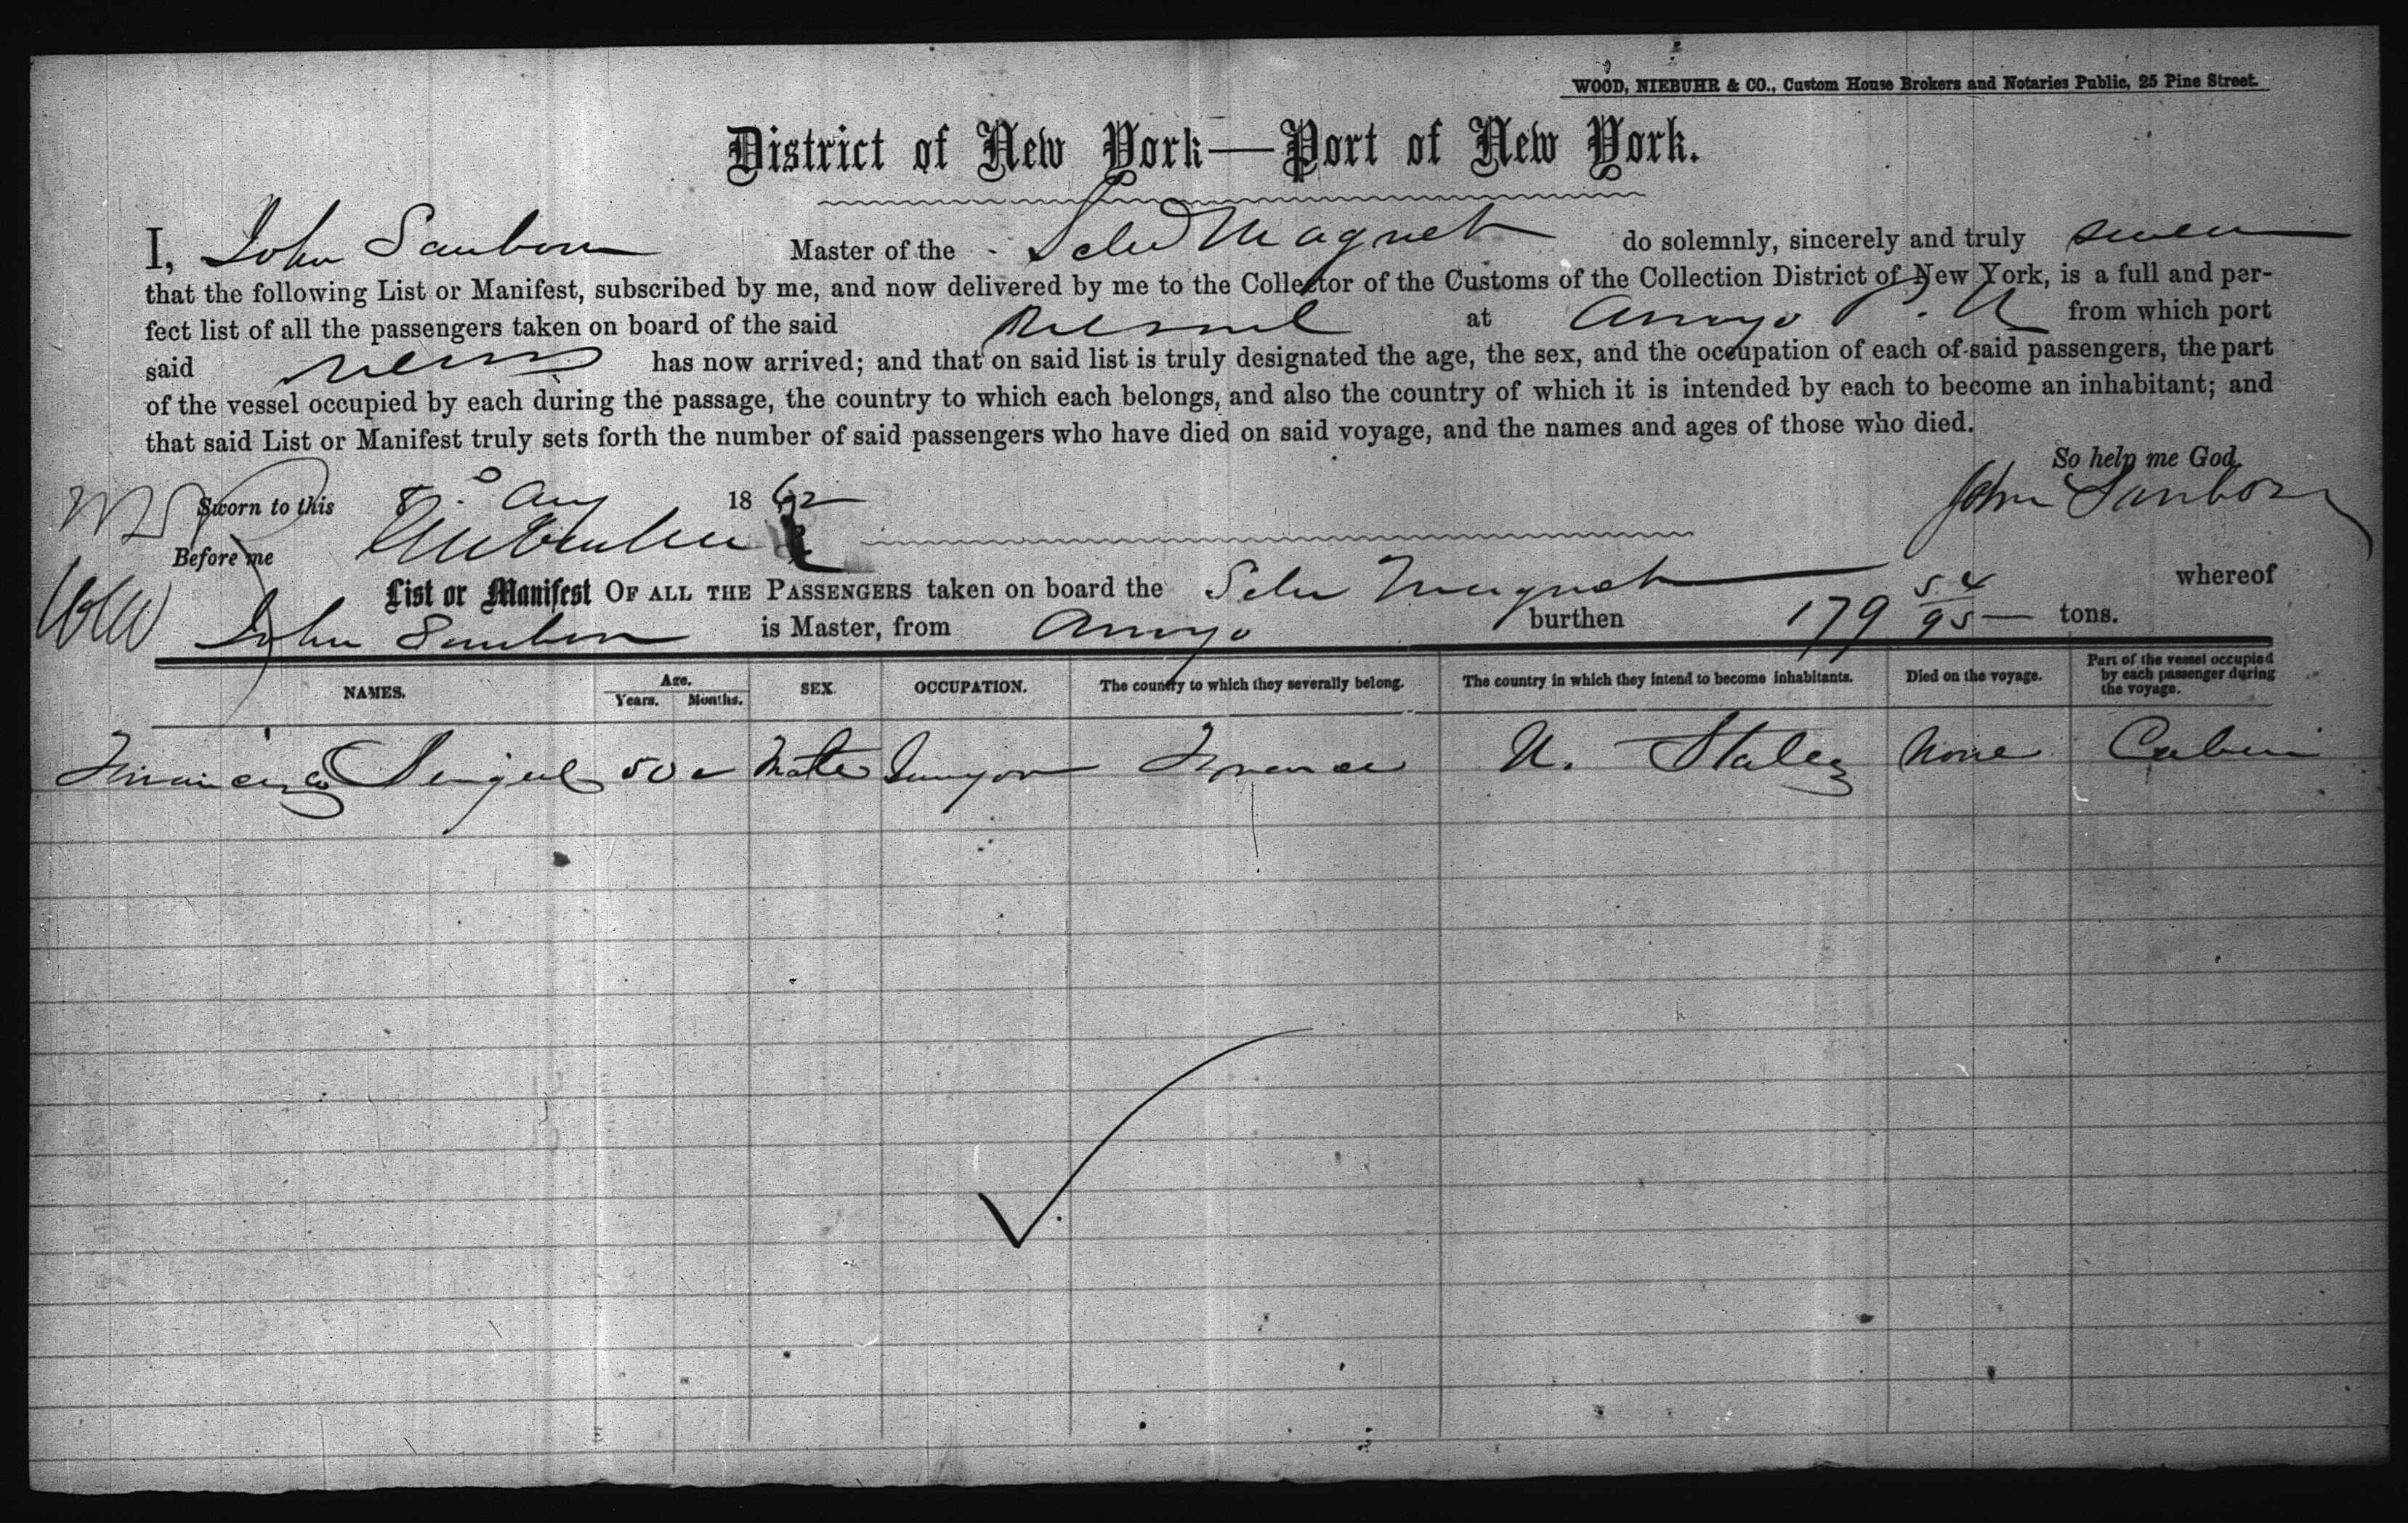 WOOD, NIEBUHR & CO., Custom House Brokers and Notaries Public, 25 Pine Street.
District of New York—Port of New York.
I, John Sanborn Master of the Schr Magnet do solemnly, sincerely and truly swear
that the following List or Manifest, subscribed by me, and now delivered by me to the Collector of the Customs of the Collection District of New York, is a full and per-
fect list of all the passengers taken on board of the said Vessel at Arroyo P. R from which port
said Vessel has now arrived; and that on said list is truly designated the age, the sex, and the occupation of each of said passengers, the part
of the vessel occupied by each during the passage, the country to which each belongs, and also the country of which it is intended by each to become an inhabitant; and
that said List or Manifest truly sets forth the number of said passengers who have died on said voyage, and the names and ages of those who died.
So help me God.
Sworn to this 8 Aug 1862 John Sanborn
Before me
List or Manifest OF ALL THE PASSENGERS taken on board the Schr Magnet whereof
John Sanborn is Master, from Arroyo burthen 179 54/95 tons.
NAMES. Age. Years. Months. SEX. OCCUPATION. The country to which they severally belong. The country in which they intend to become inhabitants. Died on the voyage. Part of the vessel occupied by each passenger during the voyage.
Francisco 50 Male France U. States None Cabin